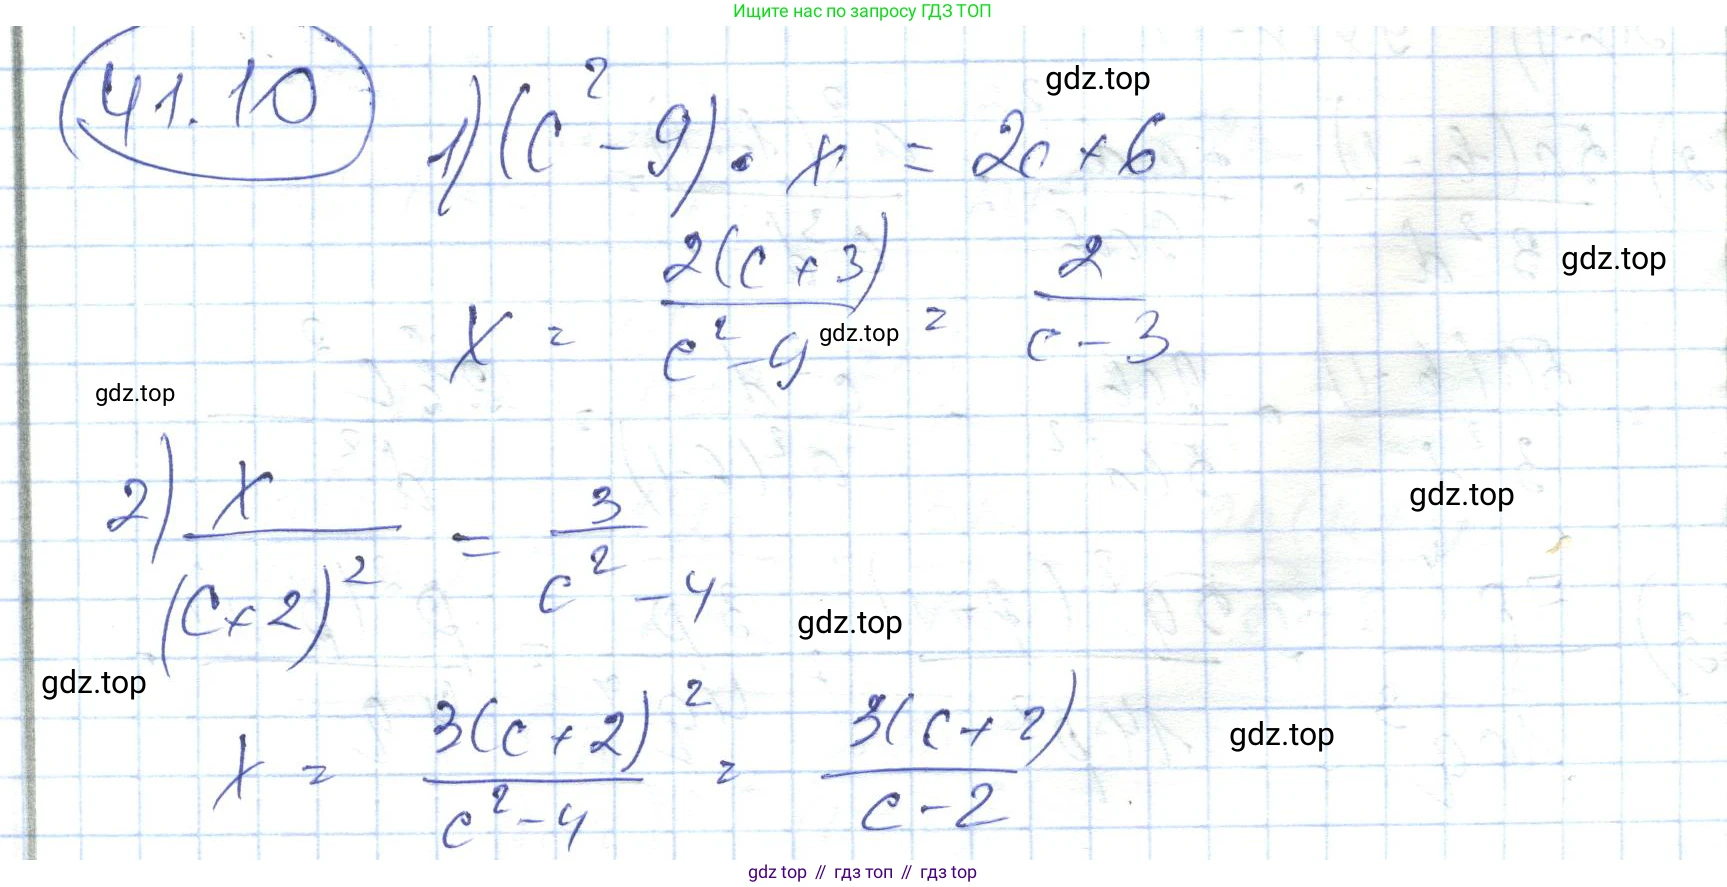 Ищите нас по запросу ГДЗ ТОП
41.10
1) (c² - 9) · x = 2c + 6
gdz.top
x = 2(c + 3) / c² - 9 = 2 / c - 3
gdz.top
gdz.top
gdz.top
2) x / (c + 2)² = 3 / c² - 4
gdz.top
gdz.top
gdz.top
x = 3(c + 2)² / c² - 4 = 3(c + 2) / c - 2
gdz.top
gdz top // гдз топ // гдз top